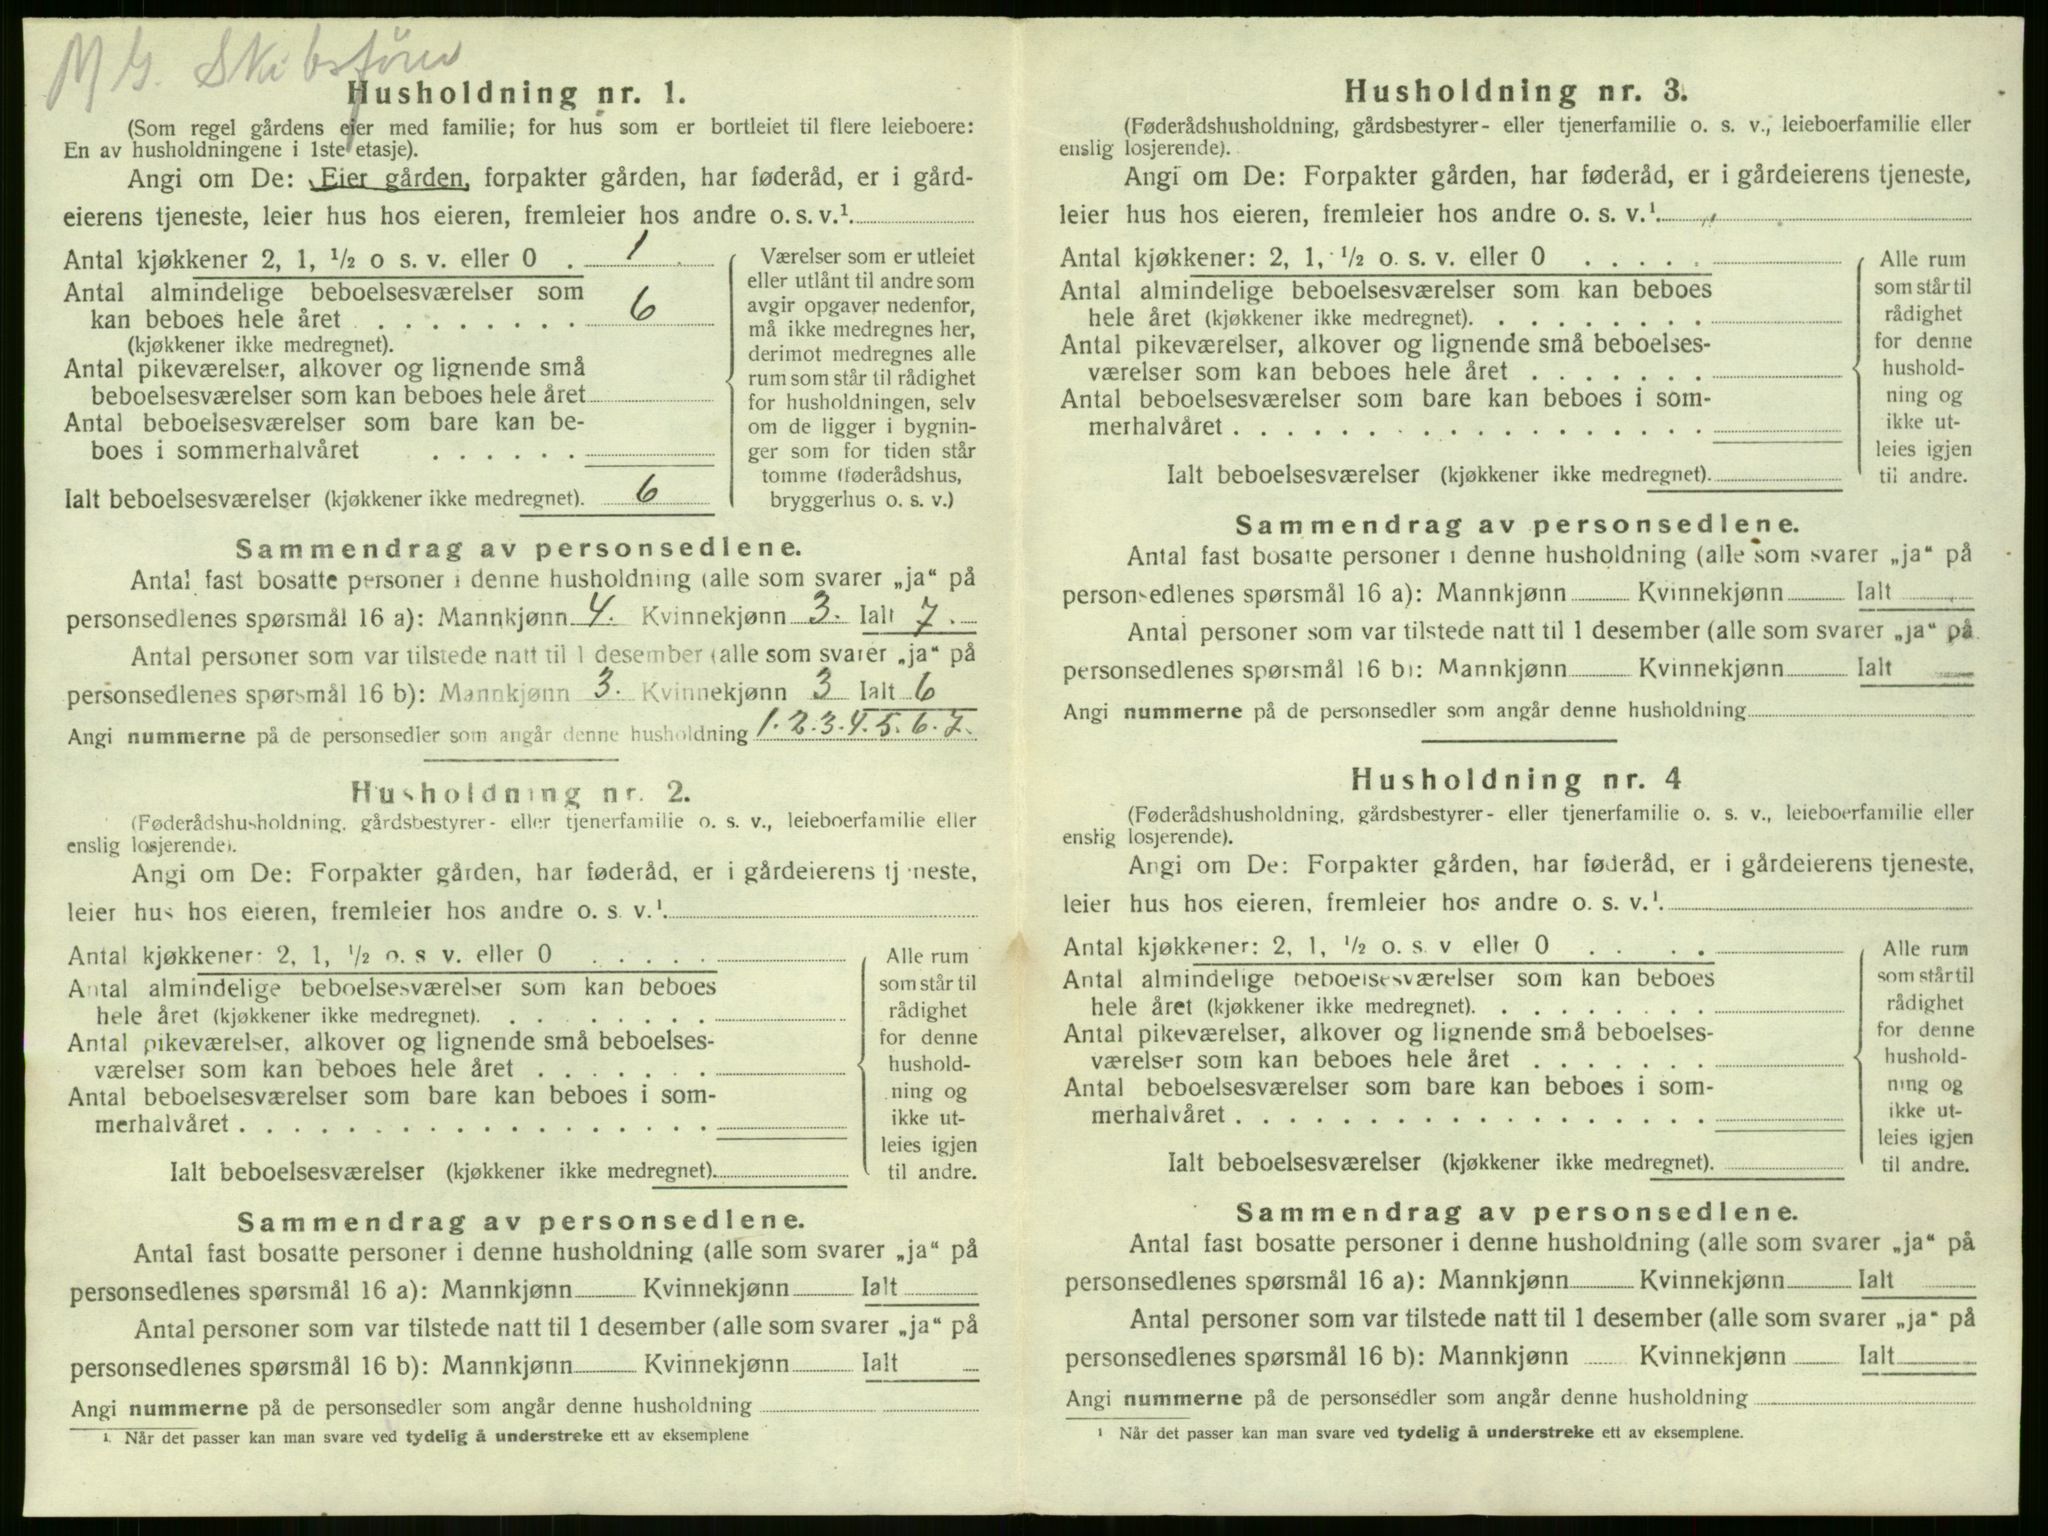 M/G. Skibsfører
Husholdning nr. 1.
(Som regel gårdens eier med familie; for hus som er bortleiet til flere leieboere:
En av husholdningene i 1ste etasje).
Angi om De: Eier gården, forpakter gården, har føderåd, er i gård-
eierens tjeneste, leier hus hos eieren, fremleier hos andre o. s. v.¹
Antal kjøkkener 2, 1, ½ o s. v. eller 0 . 1
Antal almindelige beboelsesværelser som
kan beboes hele året . . . . . . . . 6
(kjøkkener ikke medregnet).
Antal pikeværelser, alkover og lignende små
beboelsesværelser som kan beboes hele året
Antal beboelsesværelser som bare kan be-
boes i sommerhalvåret . . . . . .
Ialt beboelsesværelser (kjøkkener ikke medregnet). 6
Værelser som er utleiet
eller utlånt til andre som
avgir opgaver nedenfor,
må ikke medregnes her,
derimot medregnes alle
rum som står til rådighet
for husholdningen, selv
om de ligger i bygnin-
ger som for tiden står
tomme (føderådshus,
bryggerhus o. s. v.)
Sammendrag av personsedlene.
Antal fast bosatte personer i denne husholdning (alle som svarer „ja“ på
personsedlenes spørsmål 16 a): Mannkjønn 4. Kvinnekjønn 3. Ialt 7.
Antal personer som var tilstede natt til 1 desember (alle som svarer „ja“ på
personsedlenes spørsmål 16 b): Mannkjønn 3. Kvinnekjønn 3 Ialt 6
Angi nummerne på de personsedler som angår denne husholdning 1. 2. 3. 4. 5. 6. 7.
Husholdning nr. 2.
(Føderådshusholdning, gårdsbestyrer- eller tjenerfamilie o. s. v., leieboerfamilie eller
enslig losjerende).
Angi om De: Forpakter gården, har føderåd, er i gårdeierens tj neste,
leier hus hos eieren, fremleier hos andre o. s. v.¹.
Antal kjøkkener: 2, 1, ½ o. s v. eller 0 . . . . .
Antal almindelige beboelsesværelser som kan beboes
hele året (kjøkkener ikke medregnet). . . . . . . . .
Antal pikeværelser, alkover og lignende små beboelses-
værelser som kan beboes hele året . . . . . . .
Antal beboelsesværelser som bare kan beboes i som-
merhalvåret . . . . . . . . . . . . . . . . . .
Ialt beboelsesværelser (kjøkkener ikke medregnet).
Alle rum
som står til
rådighet
for denne
hushold-
ning og
ikke ut-
leies igjen
til andre.
Sammendrag av personsedlene.
Antal fast bosatte personer i denne husholdning (alle som svarer „ja“ på
personsedlenes spørsmål 16 a): Mannkjønn Kvinnekjønn Ialt
Antal personer som var tilstede natt til 1 desember (alle som svarer „ja“ på
personsedlenes spørsmål 16 b): Mannkjønn Kvinnekjønn Ialt
Angi nummerne på de personsedler som angår denne husholdning
¹. Når det passer kan man svare ved tydelig å understreke ett av eksemplene
Husholdning nr. 3.
(Føderådshusholdning, gårdsbestyrer- eller tjenerfamilie o. s. v., leieboerfamilie eller
enslig losjerende).
Angi om De: Forpakter gården, har føderåd, er i gårdeierens tjeneste,
leier hus hos eieren, fremleier hos andre o. s. v.¹.
Antal kjøkkener: 2, 1, ½ o. s. v. eller 0 . . . . .
Antal almindelige beboelsesværelser som kan beboes
hele året (kjøkkener ikke medregnet). . . . . . . . .
Antal pikeværelser, alkover og lignende små beboelses-
værelser som kan beboes hele året . . . . . . .
Antal beboelsesværelser som bare kan beboes i som-
merhalvåret . . . . . . . . . . . . . . . . . .
Ialt beboelsesværelser (kjøkkener ikke medregnet).
Alle rum
som står til
rådighet
for denne
hushold-
ning og
ikke ut-
leies igjen
til andre.
Sammendrag av personsedlene.
Antal fast bosatte personer i denne husholdning (alle som svarer „ja“ på
personsedlenes spørsmål 16 a): Mannkjønn Kvinnekjønn Ialt
Antal personer som var tilstede natt til 1 desember (alle som svarer „ja“ på
personsedlenes spørsmål 16 b): Mannkjønn Kvinnekjønn Ialt
Angi nummerne på de personsedler som angår denne husholdning
Husholdning nr. 4
(Føderådshusholdning, gårdsbestyrer- eller tjenerfamilie o. s. v., leieboerfamilie eller
enslig losjerende).
Angi om De: Forpakter gården, har føderåd, er i gårdeierens tjeneste,
leier hus hos eieren, fremleier hos andre o. s. v.¹.
Antal kjøkkener: 2, 1, ½ o. s. v eller 0 . . . .
Antal almindelige beboelsesværelser som kan beboes
hele året (kjøkkener ikke medregnet). . . . . . . . .
Antal pikeværelser, alkover og lignende små beboelses-
værelser som kan beboes hele året . . . . . . .
Antal beboelsesværelser som bare kan beboes i som-
merhalvåret . . . . . . . . . . . . . . . . . .
Ialt beboelsesværelser (kjøkkener ikke medregnet).
Alle rum
som står til
rådighet
for denne
hushold-
ning og
ikke ut-
leies igjen
til andre.
Sammendrag av personsedlene.
Antal fast bosatte personer i denne husholdning (alle som svarer „ja“ på
personsedlenes spørsmål 16 a): Mannkjønn Kvinnekjønn Ialt
Antal personer som var tilstede natt til 1 desember (alle som svarer „ja“ på
personsedlenes spørsmål 16 b): Mannkjønn Kvinnekjønn Ialt
Angi nummerne på de personsedler som angår denne husholdning
¹ Når det passer kan man svare ved tydelig å understreke ett av eksemplene.